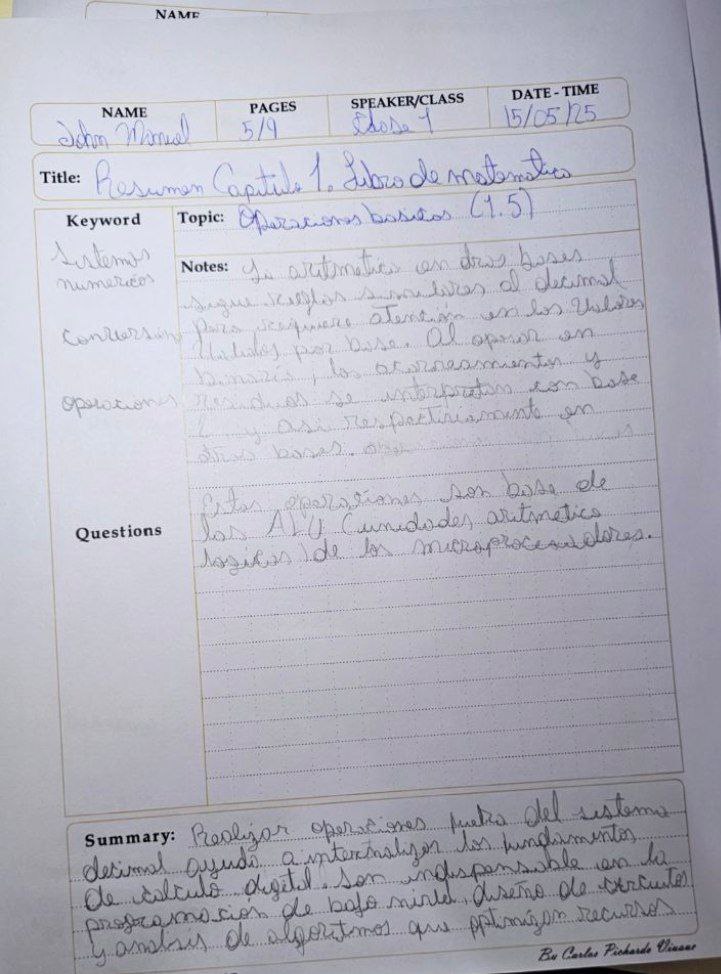 NAME
NAME PAGES SPEAKER/CLASS DATE - TIME
John Manuel 5/9 Clase 1 15/05/25
Title: Resumen Capitulo 1. Libro de matematica
Keyword Topic: Operaciones basicas (1.5)
Sistemas
numericos
conversión
operaciones
Notes: La aritmetica en otras bases
sigue reglas similares al decimal
pero requiere atencion en los Valores
Validos por base. Al operar en
binario, los acarreamientos y
residuos se interpretan con base
2 y asi respectivamente en
otras bases.
Questions
Estas operaciones son base de
las ALU (unidades aritmetico
logicas) de los microprocesadores.
Summary: Realizar operaciones fuera del sistema
decimal ayuda a internalizar los fundamentos
de calculo digital. Son indispensable en la
programacion de bajo nivel, diseño de circuitos
y analisis de algoritmos que optimizan recursos
By Carlos Pichardo Viuque